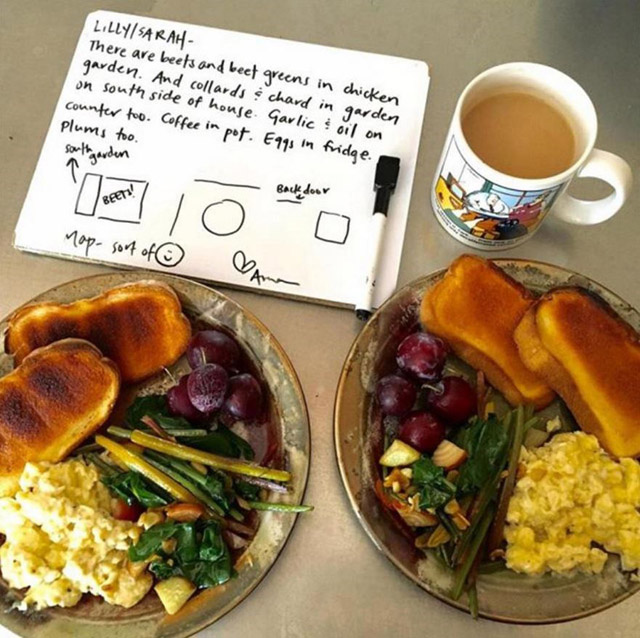 LILLY/SARAH-
There are beets and beet greens in chicken
garden. And collards & chard in garden
on south side of house. Garlic & oil on
counter too. Coffee in pot. Eggs in fridge.
Plums too.
south garden
BEETS!
Back door
Map- sort of